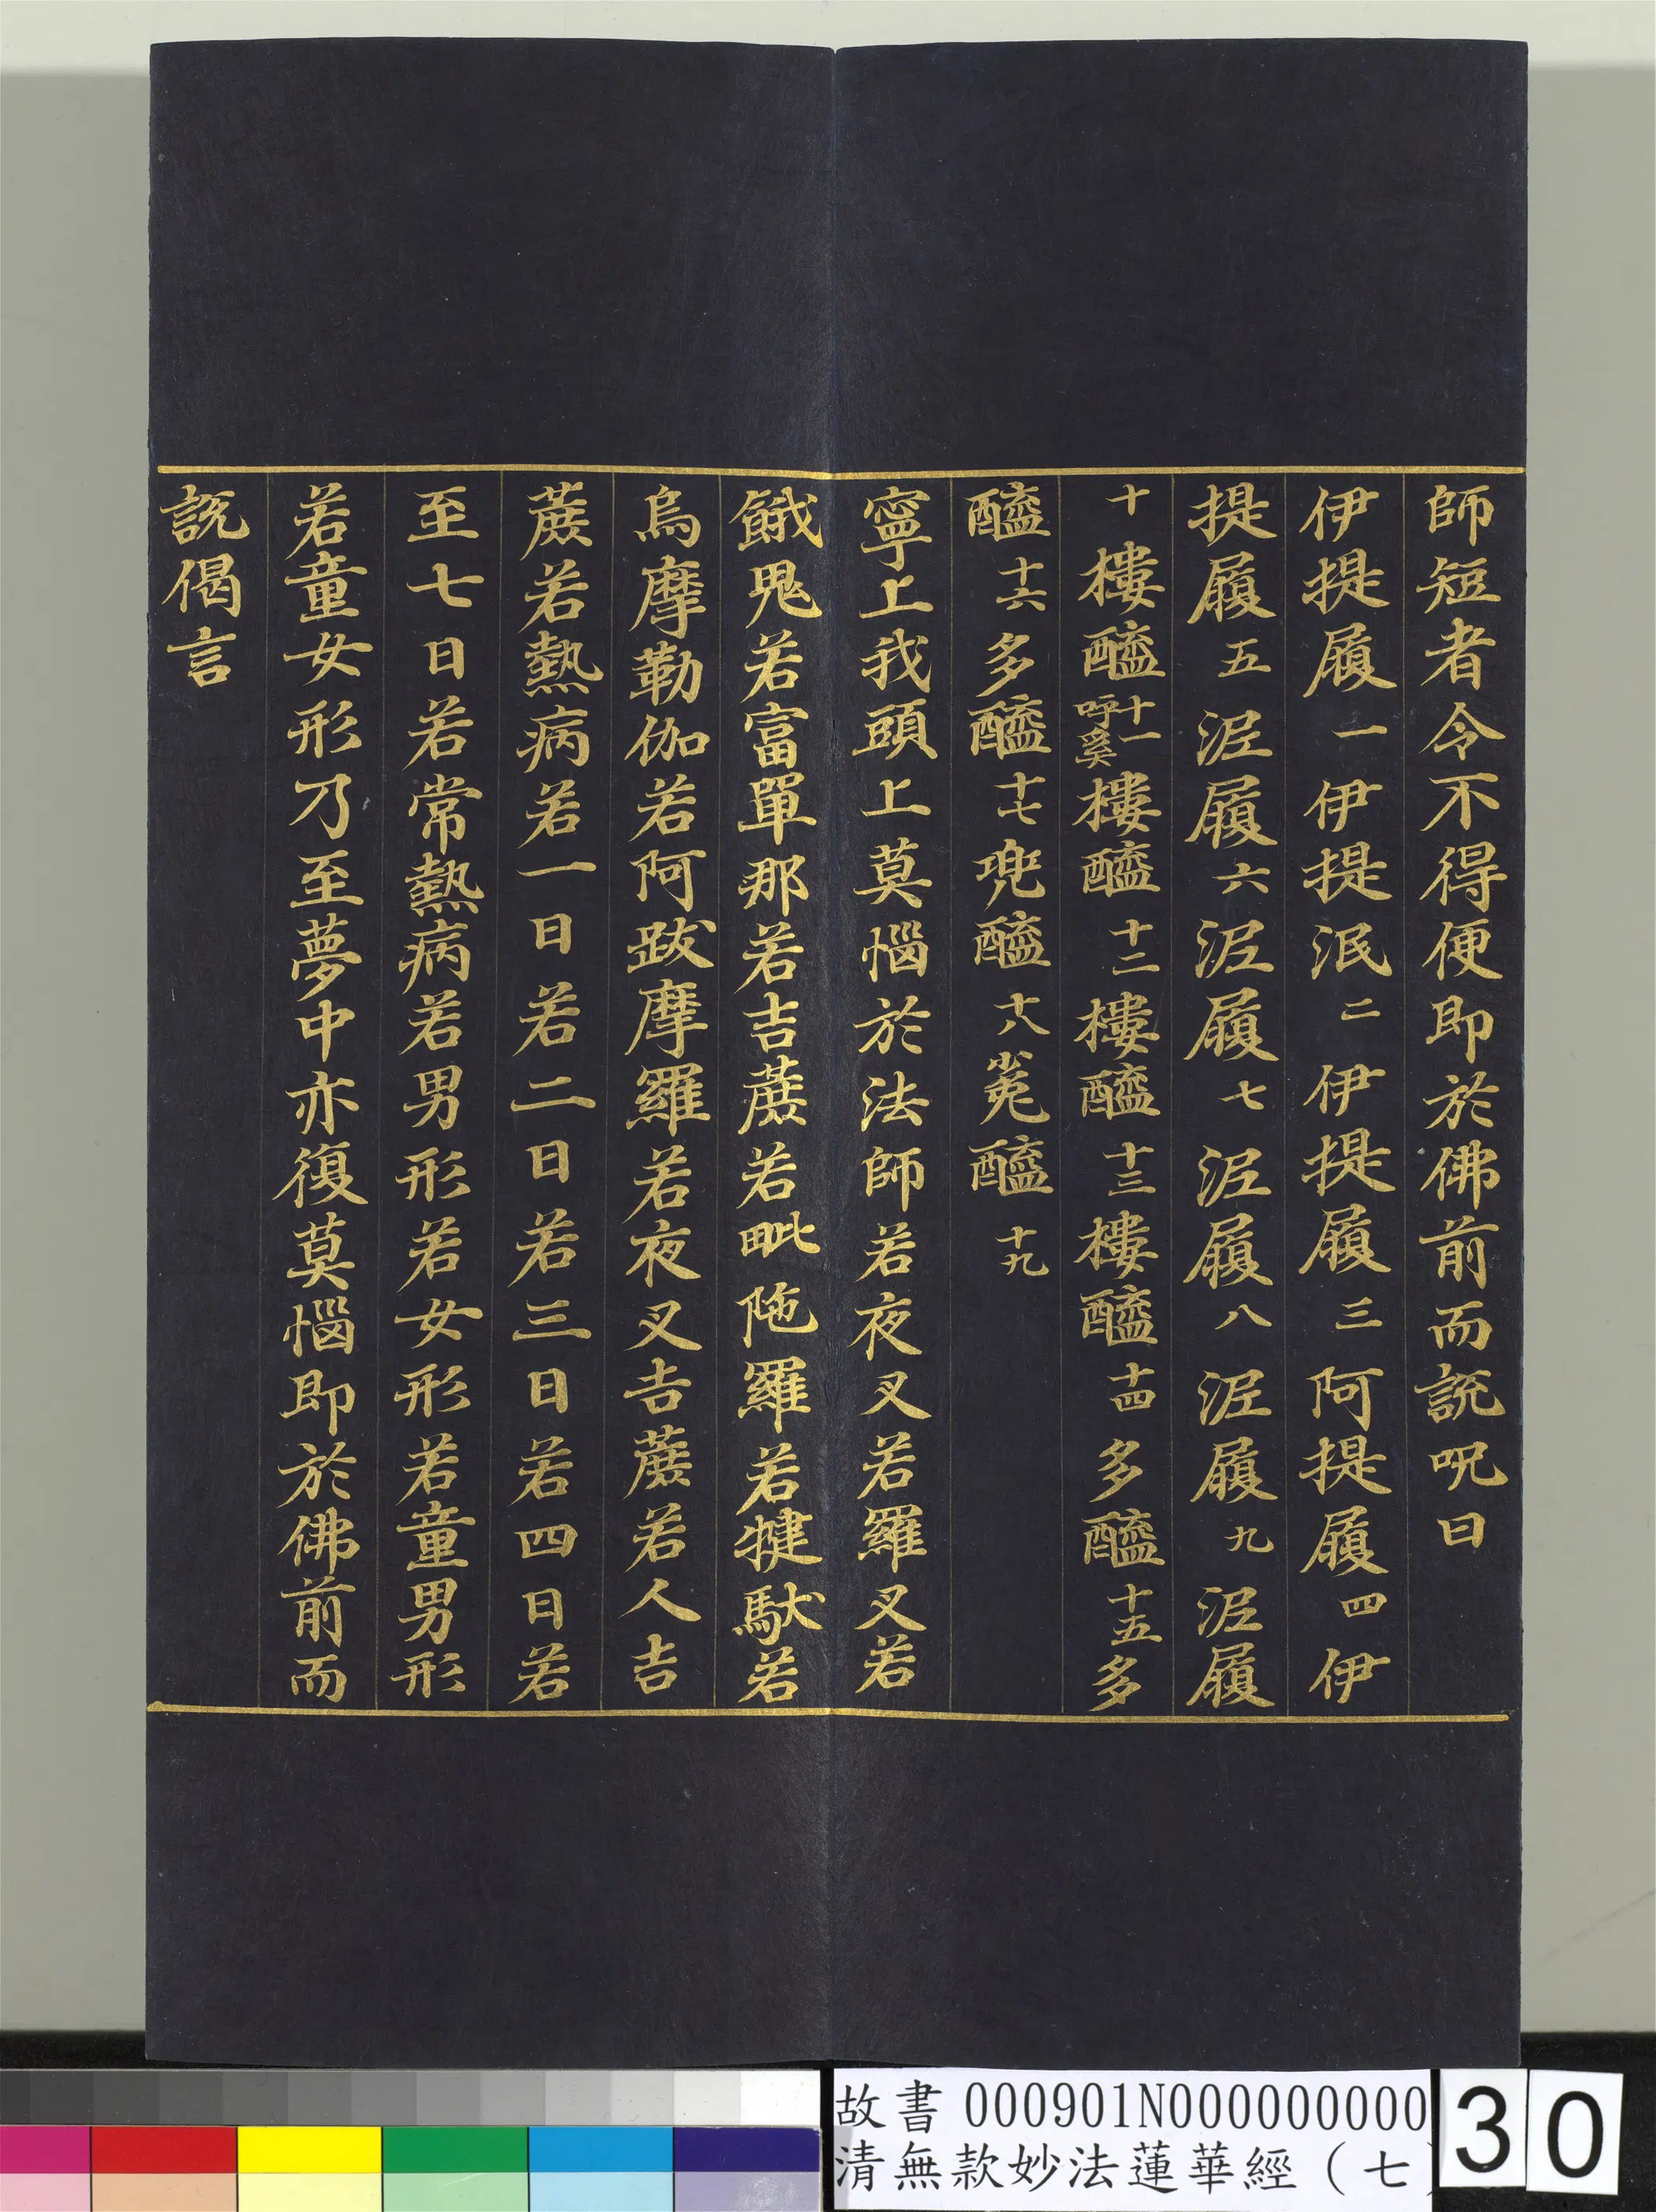 師短者令不得便即於佛前而説呪曰
伊提履一伊提泯二伊提履三阿提履四伊
提履五泥履六泥履七泥履八泥履九泥履
十樓醯十一呼奚樓醯十二樓醯十三樓醯十四多醯十五多
醯十六多醯十七兠醯十八㝹醯十九
寧上我頭上莫惱於法師若夜叉若羅叉若
餓鬼若富單那若吉蔗若毗陁羅若犍馱若
烏摩勒伽若阿跋摩羅若夜叉吉蔗若人吉
蔗若熱病若一日若二日若三日若四日若
至七日若常熱病若男形若女形若童男形
若童女形乃至夢中亦復莫惱即於佛前而
説偈言
故書 000901N000000000
清無款妙法蓮華經（七
30